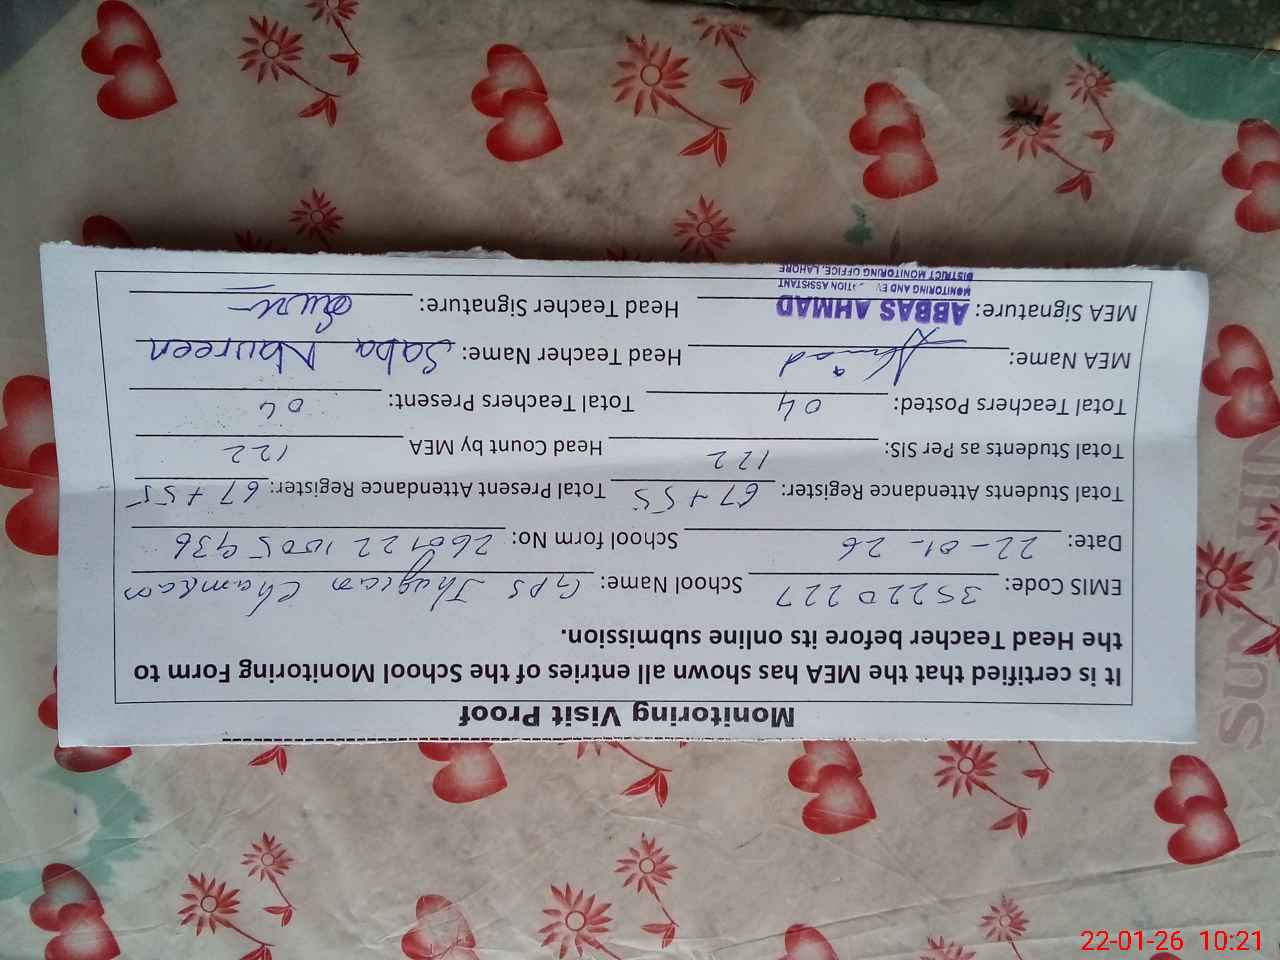 Monitoring Visit Proof
It is certified that the MEA has shown all entries of the School Monitoring Form to
the Head Teacher before its online submission.
EMIS Code: 35220227 School Name: GPS Jhugian Chamkan
Date: 22-01-26 School form No: 2601221005936
Total Students Attendance Register: 67+55 Total Present Attendant Register: 67+55
Total Students as Per SIS: 122 Head Count by MEA 122
Total Teachers Posted: 04 Total Teachers Present: 04
MEA Name: Ahmad Head Teacher Name: Saba Noureen
MEA Signature: Head Teacher Signature:
ABBAS AHMAD
MONITORING AND ATION ASSISTANT
DISTRICT MONITORING OFFICE, LAHORE
SUNSHINE
22-01-26 10:21